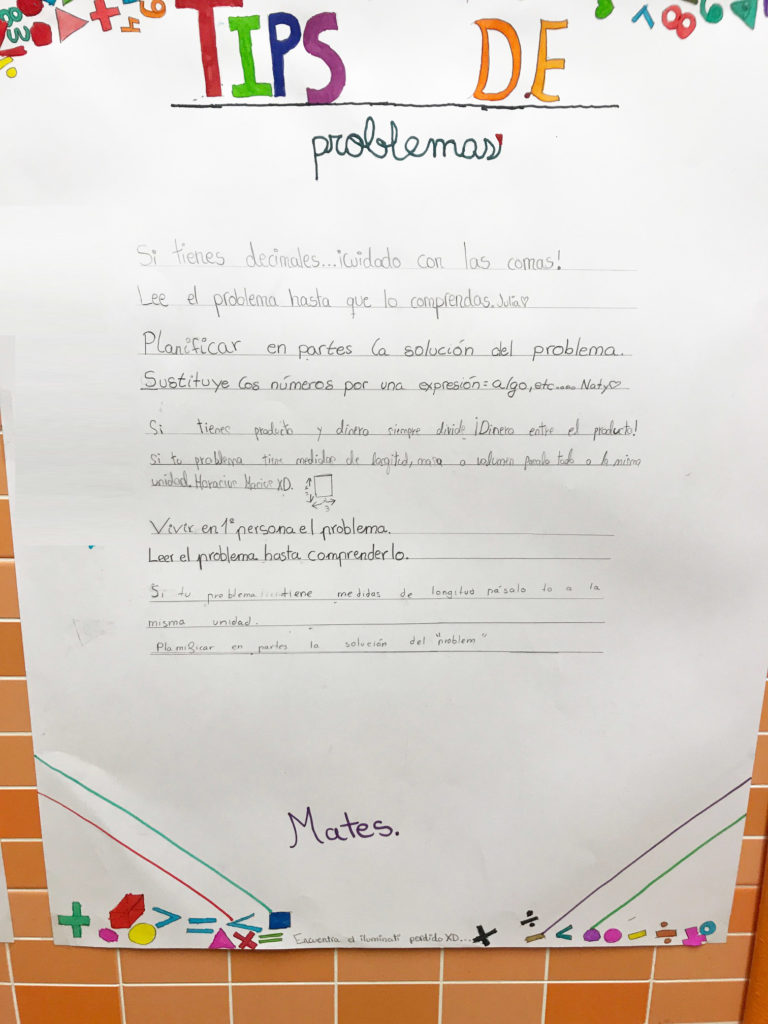 TIPS DE
problemas
Si tienes decimales...¡cuidado con las comas!
Lee el problema hasta que lo comprendas. Julia♡
Planificar en partes la solución del problema.
Sustituye los números por una expresión = algo, etc..... Naty♡
Si tienes producto y dinero siempre divide ¡Dinero entre el producto!
Si tu problema tiene medidas de longitud, masa o volumen pasalo todo a la misma
unidad. XD.
3
Vivir en 1ª persona el problema.
Leer el problema hasta comprenderlo.
Si tu problema tiene medidas de longitud pásalo to a la
misma unidad.
Planificar en partes la solución del "problem"
Mates.
Encuentra el iluminati perdido XD...